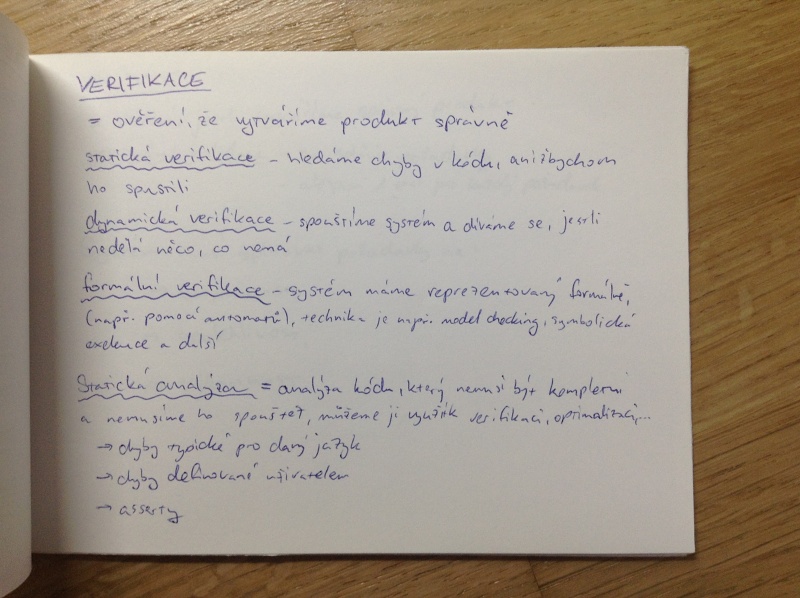 VERIFIKACE
= ověření, že vytváříme produkt správně
statická verifikace – hledáme chyby v kódu, anižbychom
ho spustili
dynamická verifikace – spouštíme systém a díváme se, jestli
nedělá něco, co nemá
formální verifikace – systém máme reprezentovaný formálně,
(např. pomocí automatů), technika je např. model checking, symbolická
exekuce a další
Statická analýza = analýza kódu, který nemusí být kompletní
a nemusíme ho spouštět, můžeme ji využít k verifikaci, optimalizaci,...
→ chyby typické pro daný jazyk
→ chyby definované uživatelem
→ asserty